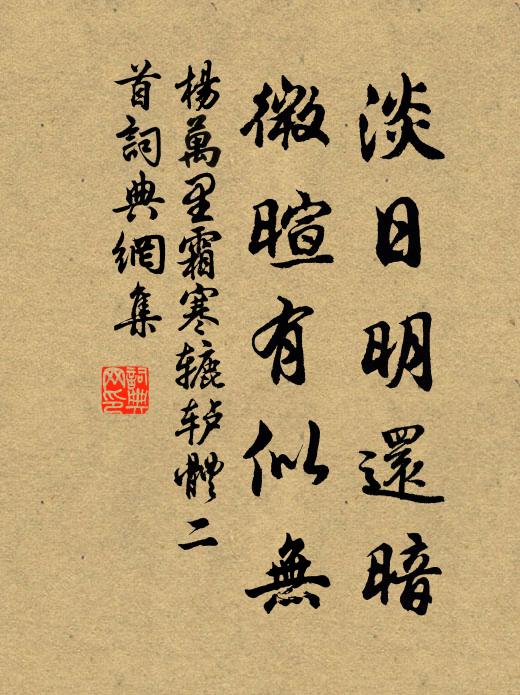 淡日明還暗
微暄有似無
楊萬里霜寒辘轳體二
首詞典網集
詞典網印